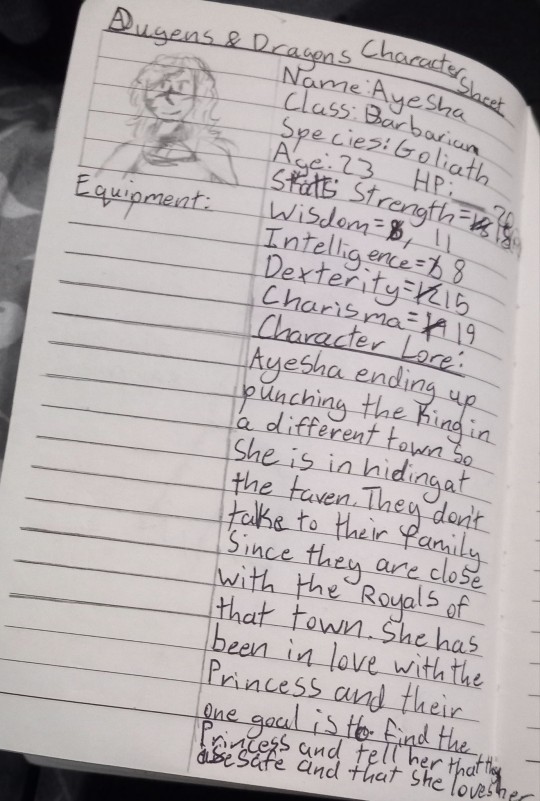 Dugens & Dragons Character Sheet
Name: Ayesha
Class: Barbarian
Species: Goliath
Age: 23 HP:
Stats: Strength= 20
Equipment:
Wisdom= 11
Intelligence= 8
Dexterity= 15
Charisma= 19
Character Lore:
Ayesha ending up
punching the King in
a different town so
She is in hiding at
the taven. They don't
talk to their family
Since they are close
with the Royals of
that town. She has
been in love with the
Princess and their
one goal is to find the
Princess and tell her that they
are safe and that she loves her